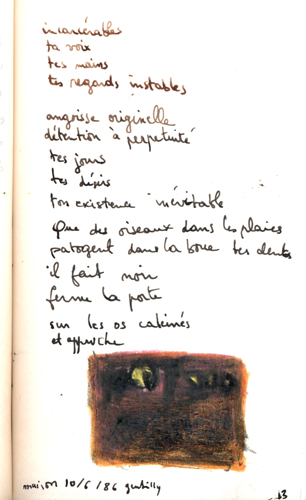 incarcérables
ta voix
tes mains
tes regards instables
angoisse originelle
détention à perpetuité
tes jours
tes désirs
ton existence inévitable
Que des oiseaux dans les plaies
patogent dans la boue tes dents
il fait noir
ferme la porte
sur les os calcinés
et approche
maison 10/6/86 gentilly
13